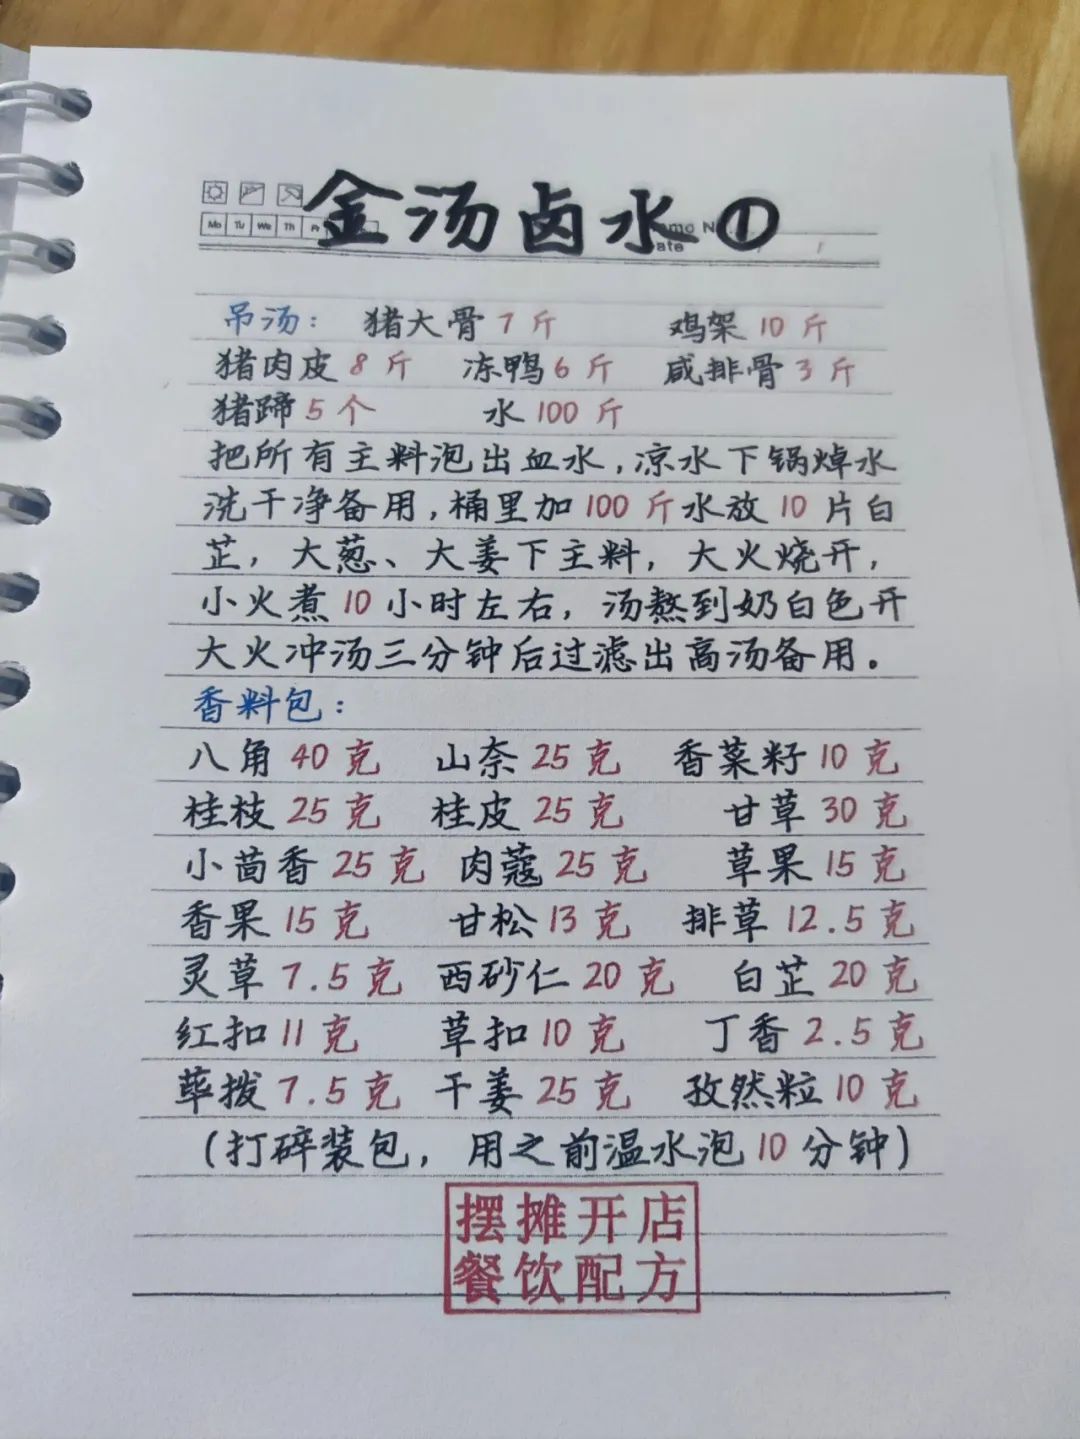 金汤卤水①
Mo Tu We Th
吊汤: 猪大骨 7 斤 鸡架 10 斤
猪肉皮 8 斤 冻鸭 6 斤 咸排骨 3 斤
猪蹄 5 个 水 100 斤
把所有主料泡出血水,凉水下锅焯水
洗干净备用,桶里加 100 斤水放 10 片白
芷,大葱、大姜下主料,大火烧开,
小火煮 10 小时左右,汤熬到奶白色开
大火冲汤三分钟后过滤出高汤备用。
香料包:
八角 40 克 山奈 25 克 香菜籽 10 克
桂枝 25 克 桂皮 25 克 甘草 30 克
小茴香 25 克 肉蔻 25 克 草果 15 克
香果 15 克 甘松 13 克 排草 12.5 克
灵草 7.5 克 西砂仁 20 克 白芷 20 克
红扣 11 克 草扣 10 克 丁香 2.5 克
荜拨 7.5 克 干姜 25 克 孜然粒 10 克
(打碎装包,用之前温水泡 10 分钟)
摆摊开店
餐饮配方